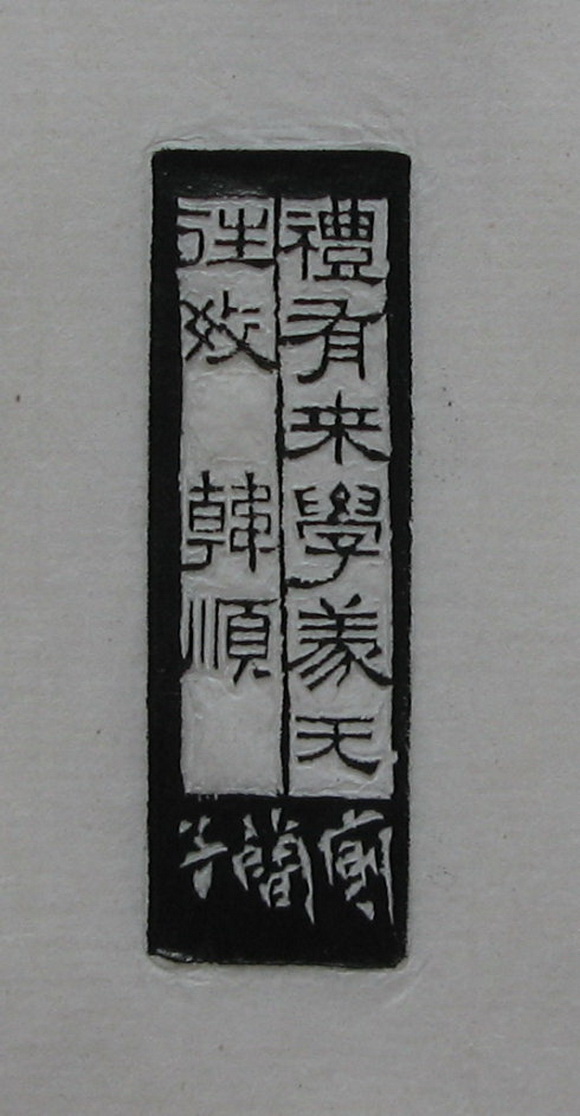 禮有来學義无
往教 韓順
簡